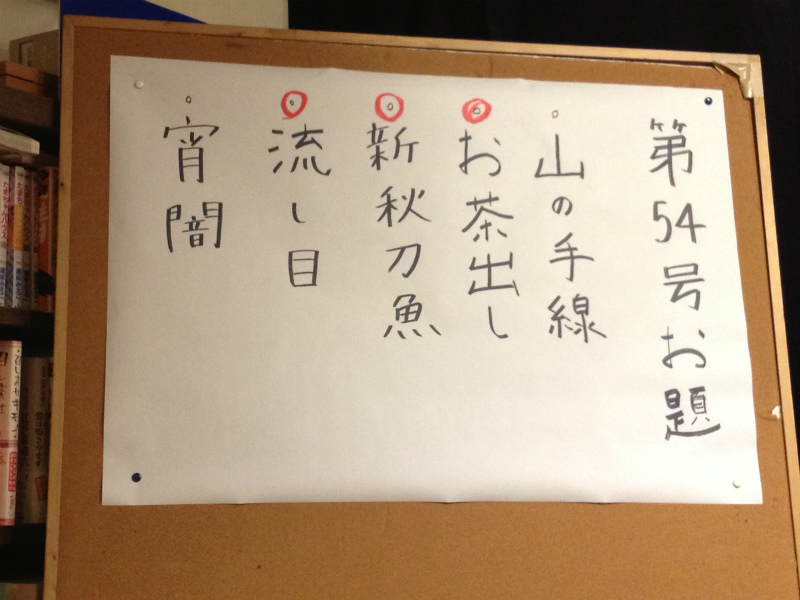 第54号お題
。山の手線
。お茶出し
。新秋刀魚
。流し目
。宵闇